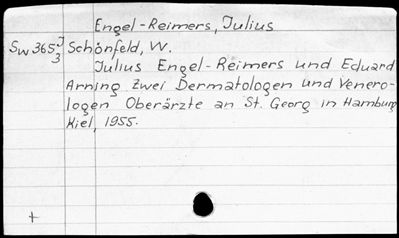 Engel-Reimers, Julius
Sw 365 J/3 Schönfeld, W.
Julius Engel-Reimers und Eduard
Arning Zwei Dermatologen und Venero-
logen Oberärzte an St. Georg in Hamburg
Kiel, 1955.
+